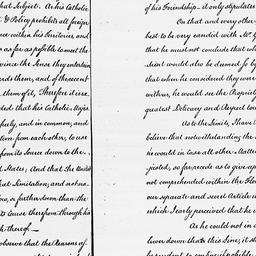 that Subject. As his Catholic
& Policy prohibits all foreign
ce within his Territories, and
as far as possible to meet the
vince the Sense they entertain
ards them, and of the recent
them of it, Therefore it is ex
ted that his Catholic Majes
parly, and in common, and
tion from each other, to use
from its Source down to the
d States, and that the United
that Limitation, and not use
low, or farther down than the
its Course therefrom through his
th thereof
observe that the Reasons of
of his Friendship it only stipulates
On that and every other
best to be very candid with Mr
that he must not conclude that wh
dient would also be deemed so by
that when he considered they were
within, he would see the Propriety
greatest Delicacy and Respect tow
As to the Limits, I have
believe that notwithstanding the
he would in case all other Matte
justed, so far recede as to give up
not comprehended within the Flo
our separate and secret Article w
which I early perceived that he w
As he could not in
lower down than this Line, it s
be prudent to confine if possible